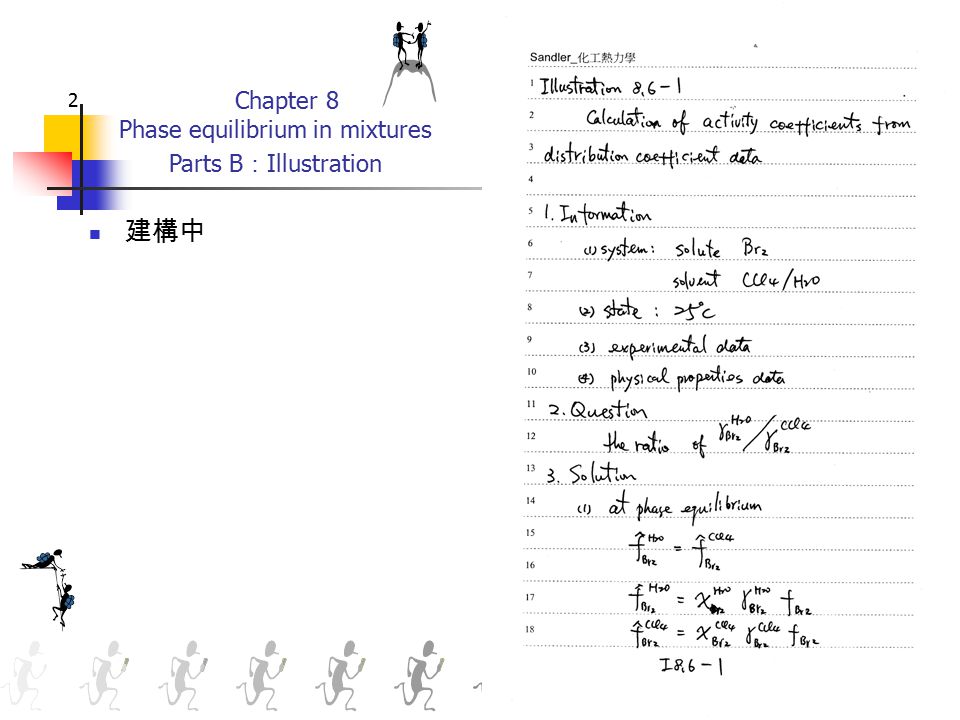 2
Chapter 8
Phase equilibrium in mixtures
Parts B：Illustration
建構中
Sandler_化工熱力學
1 Illustration 8.6-1
2 Calculation of activity coefficients from
3 distribution coefficient data
4
5 1. Information
6 (1) system: solute Br2
7 solvent CCl4/H2O
8 (2) state: 25°C
9 (3) experimental data
10 (4) physical properties data
11 2. Question
12 the ratio of γ_Br2^H2O / γ_Br2^CCl4
13 3. Solution
14 (1) at phase equilibrium
15 f̂_Br2^H2O = f̂_Br2^CCl4
16
17 f̂_Br2^H2O = x_Br2^H2O γ_Br2^H2O f_Br2
18 f̂_Br2^CCl4 = x_Br2^CCl4 γ_Br2^CCl4 f_Br2
I8.6-1